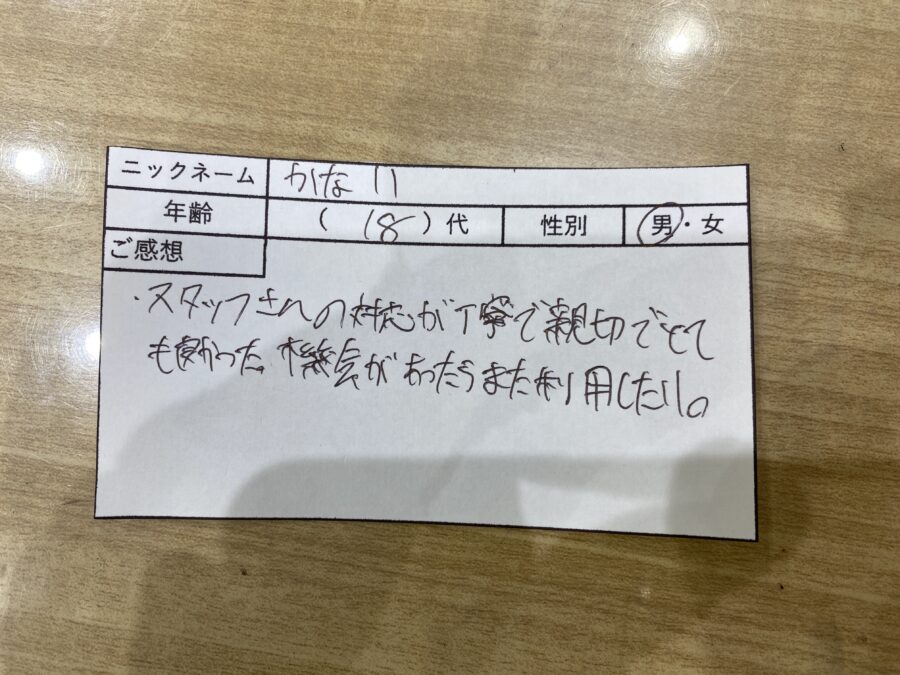 ニックネーム かない
年齢 ( 18 ) 代 性別 男・女
ご感想
・スタッフさんの対応が丁寧で親切でとて
も良かった。機会があったらまた利用したい。